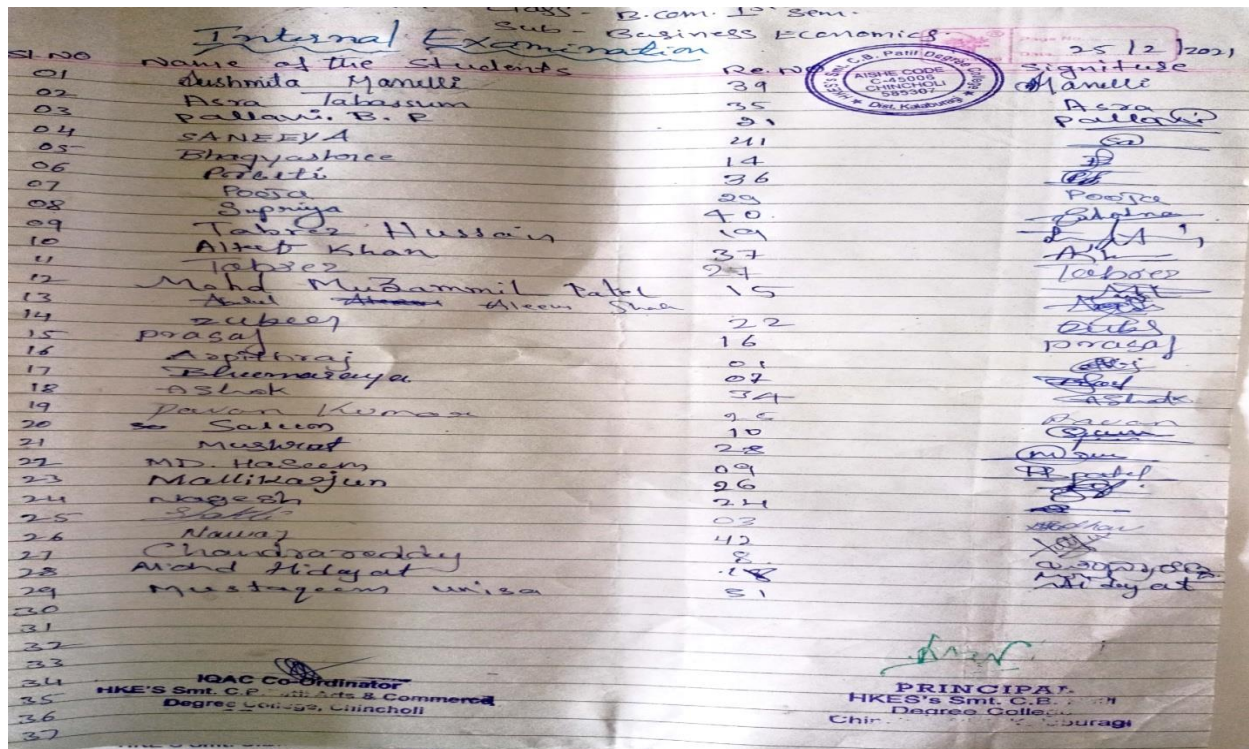 Class - B.Com. 1st Sem.
Sub - Business Economics.
Internal Examination
25/2/2021
Sl. No Name of the Students Re. No Signiture
HKES's Smt. C.B. Patil Degree College
AISHE CODE
C-45006
CHINCHOLI
585307
Dist. Kalaburagi
01 Sushmita Manelli 39 Manelli
02 Asra Tabassum 35 Asra
03 Pallavi. B. P 21 Pallavi
04 SANEEYA 41
05 Bhagyashree 14
06 Preeti 36
07 Pooja 29 Pooja
08 Supriya 40.
09 Tabrez Hussain 19
10 Altaf Khan 37
11 Tabrez 27 Tabrez
12 Mohd Muzammil Patel 15
13 Aleem
14 Zubeer 22
15 Prasaj 16 Prasaj
16 Arpithraj 01
17 Bheemaraya 07
18 AShok 34 AShok
19 Pavan Kumar Pavan
20 Saleem 10
21 Mushraf 28
22 MD. Haseem 09
23 Mallikarjun 26
24 Nagesh 24
25 03
26 Nawaz 42
27 Chandrareddy 8
28 Mohd Hidayat 18 Hidayat
29 Mustaqeem unisa 51
30
31
32
33
34
35
36
37
IQAC Co-Ordinator
HKE'S Smt. C.B. Patil Arts & Commerce
Degree College, Chincholi
PRINCIPAL
HKES's Smt. C.B.
Degree College